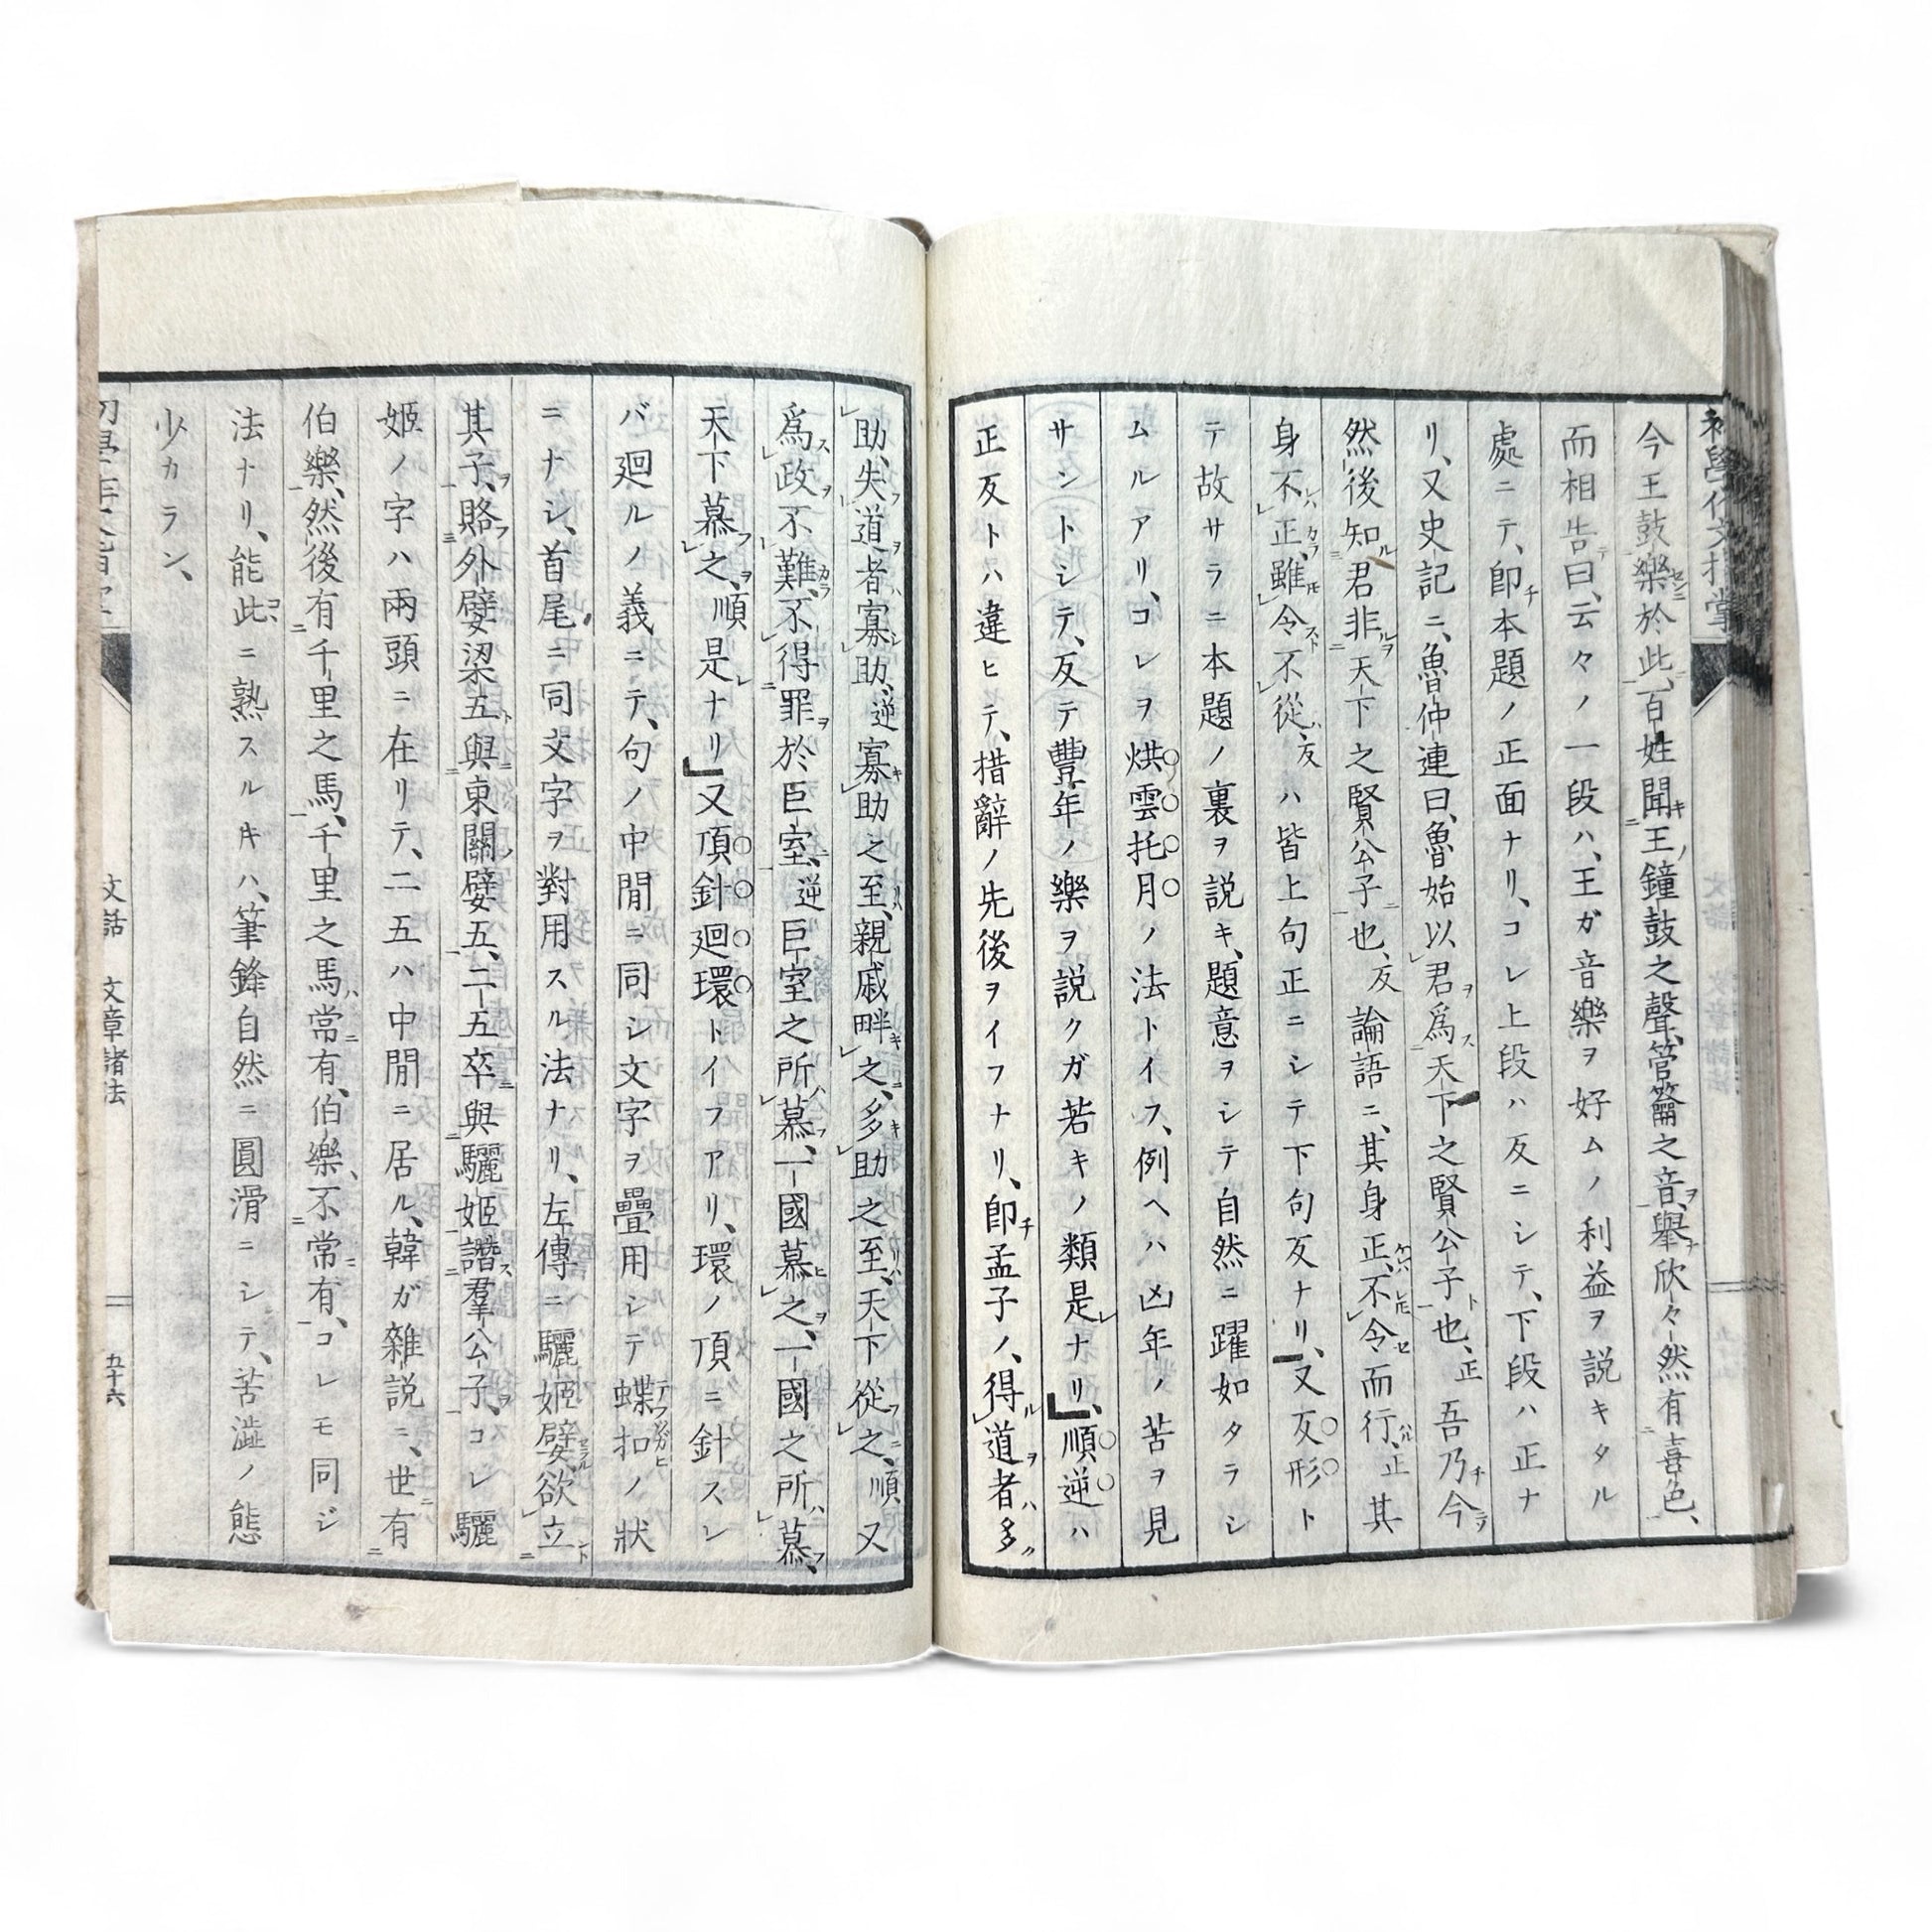 今王鼓樂於此、百姓聞王鐘鼓之聲、管籥之音、擧欣々然有喜色、
而相告曰、云々ノ一段ハ、王ガ音樂ヲ好ムノ利益ヲ説キタル
處ニテ、卽チ本題ノ正面ナリ、コレ上段ハ反ニシテ、下段ハ正ナ
リ、又史記ニ、魯仲連曰、魯始以君爲天下之賢公子也、正吾乃今
然後知君非天下之賢公子也、反論語ニ、其身正、不令而行、正其
身不正、雖令不從、反ハ皆上句正ニシテ下句反ナリ、又反形ト
テ故サラニ本題ノ裏ヲ説キ、題意ヲシテ自然ニ躍如タラシ
ムルアリ、コレヲ烘雲托月ノ法トイフ、例ヘハ凶年ノ苦ヲ見
サントシテ、反テ豐年ノ樂ヲ説クガ若キノ類是ナリ、順逆ハ
正反トハ違ヒテ、措辭ノ先後ヲイフナリ、卽チ孟子ノ、得道者多
助、失道者寡助、逆寡助之至、親戚畔之、多助之至、天下從之、順又
爲政不難、不得罪於巨室、逆巨室之所慕、一國慕之、一國之所慕、
天下慕之、順是ナリ又頂針廻環トイフアリ、環ノ頂ニ針スレ
バ廻ルノ義ニテ、句ノ中間ニ同シ文字ヲ疊用シテ蝶扣ノ狀
ニナシ、首尾ニ同文字ヲ對用スル法ナリ、左傳ニ驪姬嬖、欲立
其子、賂外嬖梁五與東關嬖五、二五卒與驪姬譖羣公子、コレ驪
姬ノ字ハ兩頭ニ在リテ、二五ハ中間ニ居ル、韓ガ雜説ニ、世有
伯樂、然後有千里之馬、千里之馬常有、伯樂不常有、コレモ同ジ
法ナリ、能此ニ熟スルキハ、筆鋒自然ニ圓滑ニシテ、苦澁ノ態
少カラン、
文話 文章諸法 五十六